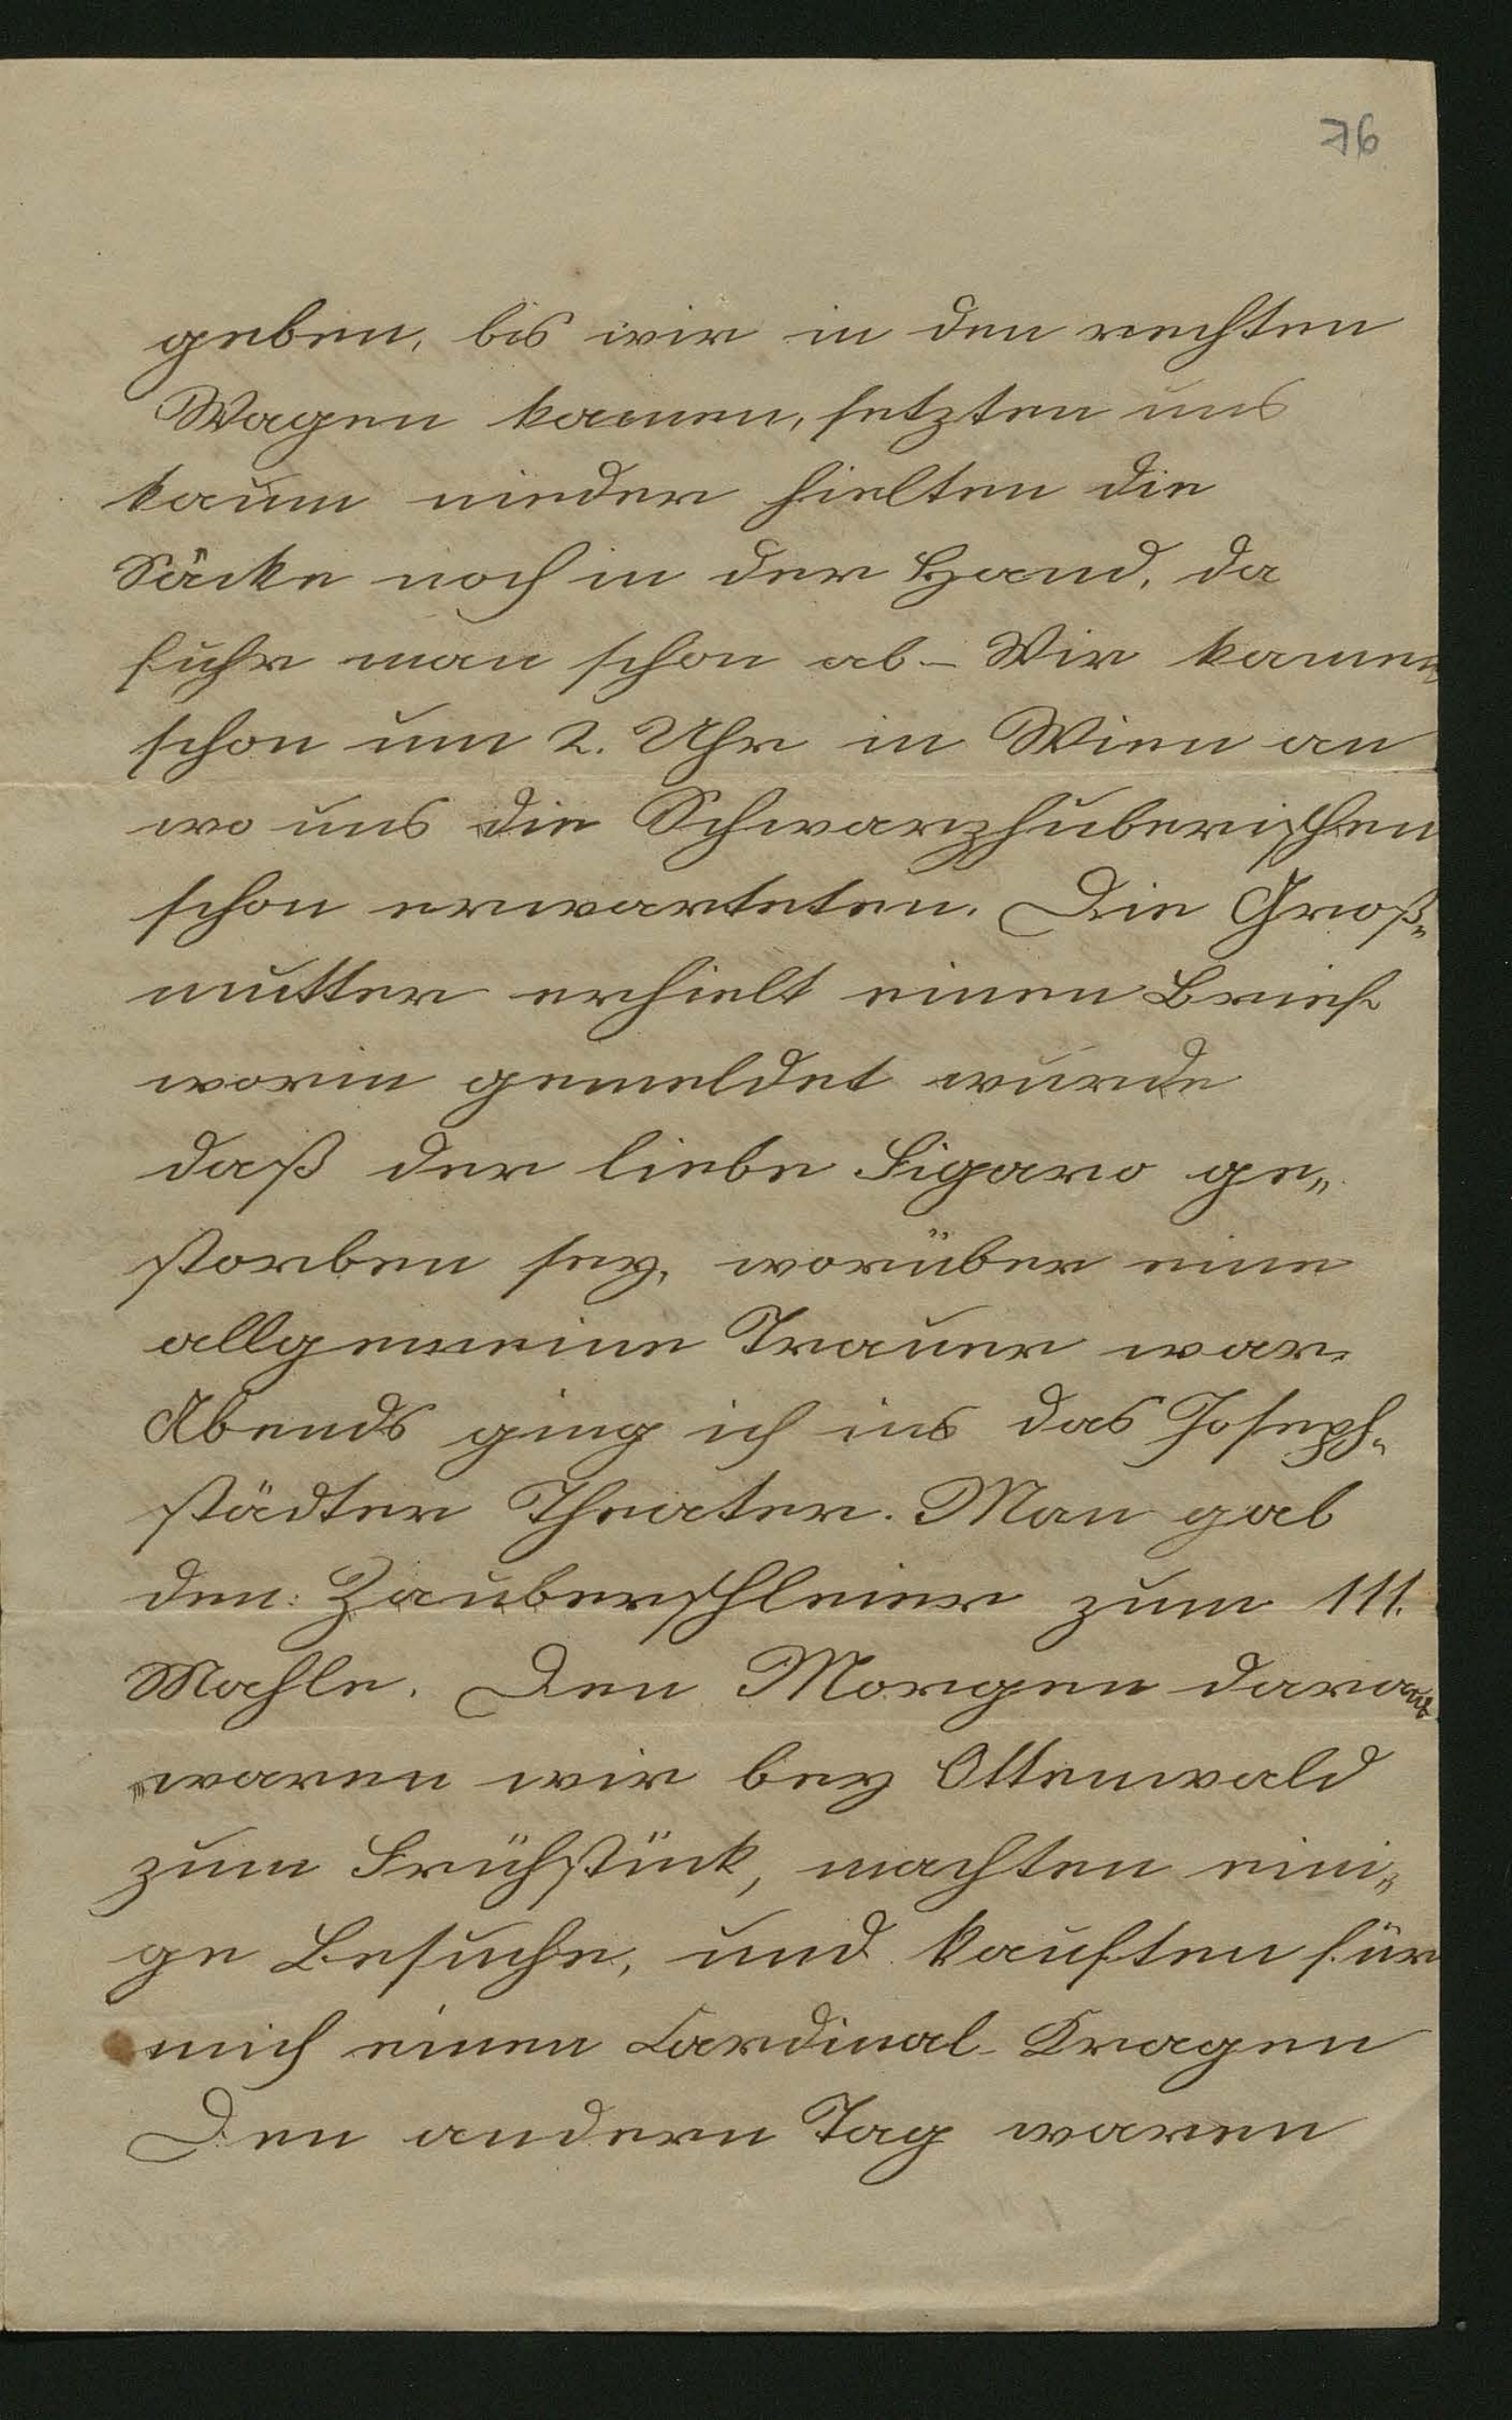 76
geben, bis wir in den rechten
Wagen kamen, setzten uns
kaum nieder hielten die
Säcke noch in der Hand, da
fuhr man schon ab – Wir kamen
schon um 2. Uhr in Wien an
wo uns die Schwarzhuberischen
schon erwarteten. Die Groß„
mutter erhielt einen Brief
worin gemeldet wurde
daß der liebe Figaro ge„
storben sey, worüber eine
allgemeine Trauer war.
Abends ging ich ins das Joseph„
städter Theater. Man gab
den: Zauberschleier zum 111.
Mahle. Den Morgen darauf
waren wir bey Ottenwald
zum Frühstück, machten eini„
ge Besuche, und kauften für
mich einen Cardinal-Kragen
Den andern Tag waren